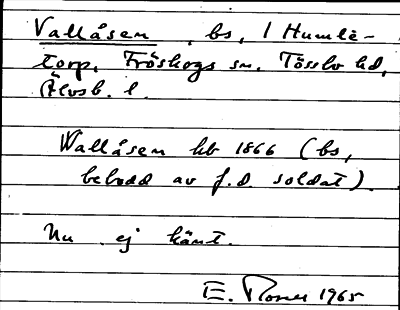 Vallåsen, bs, / Humle-
torp, Fröskogs sn, Tössbo hd,
Älvsb. l.
Wallåsen hb 1866 (bs,
bebodd av f.d. soldat).
Nu ej känt.
E. 1965